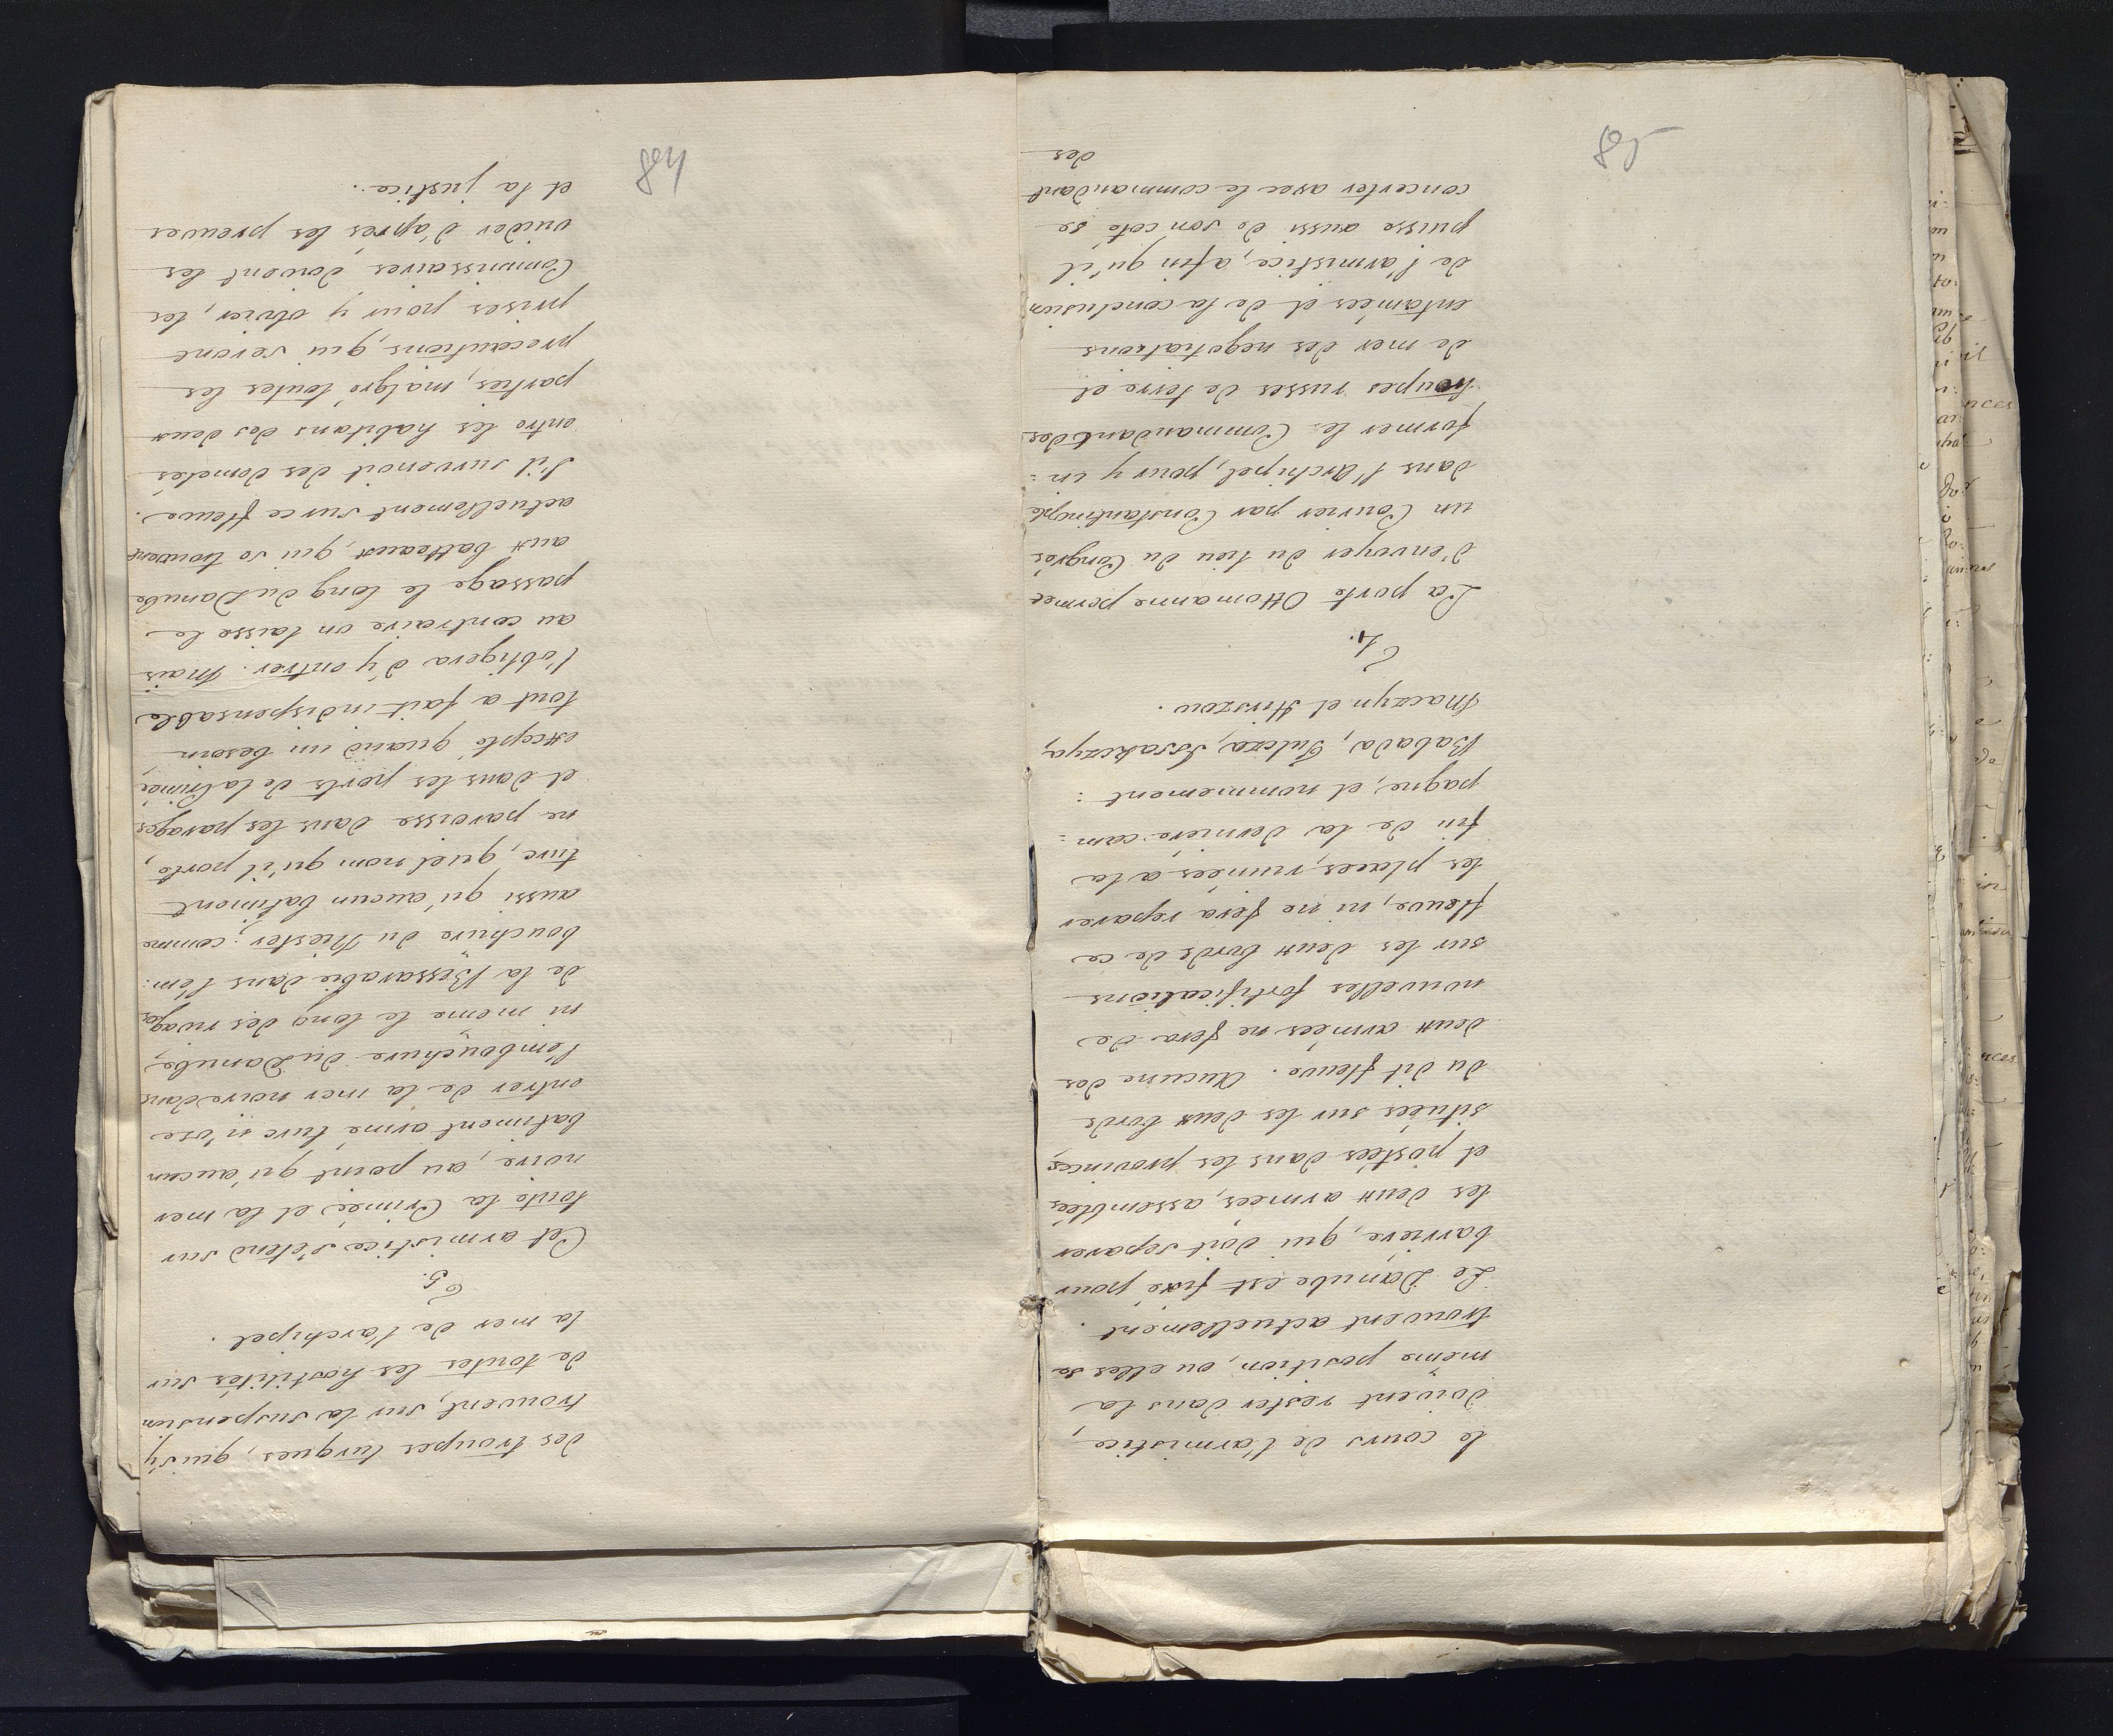 le cours de l'armistice,
doivent rester dans la
même position, ou elles se
trouvent actuellement.
Le Danube est fixé pour
barriere, qui doit separer
les deux armées, assemblées
et postées dans les provinces,
situées sur les deux bords
du dit fleuve. Aucune des
deux armées ne fera de
nouvelles fortifications
sur les deux bords de ce
fleuve, ni ne fera reparer
les places, ruinées a la
fin de la derniere cam:
pagne, et nommement:
Babada, Tulcza, Issakczya,
Maczyn et Hirszow.
4.
La porte Ottomanne permet
d'envoyer du lieu du Congrés
un Courier par Constantinople
dans l'Archipel, pour y in:
former les Commandants des
troupes russes de terre et
de mer des negotiations
entamées et de la conclusion
de l'armistice, afin qu'il
puisse aussi de son coté se
concerter avec le commandant
des
85
des troupes turques, qui s'y
trouvent, sur la suspension
de toutes les hostilités sur
la mer de l'archipel.
5.
Cet armistice s'etend sur
toute la Crimée et la mer
noire, au point qu'aucun
batiment armé turc n'ose
entrer de la mer noire dans
l'embouchure du Danube,
ni même le long des rivages
de la Bessarabie dans l'em:
bouchure du Niester; comme
aussi qu'aucun batiment
turc, quel nom qu'il porte,
ne paroisse dans les parages
et dans les ports de la Crimée,
excepté quand un besoin
tout a fait indispensable
l'obligera d'y entrer. Mais
au contraire on laisse le
passage le long du Danube
aux batteaux, qui se trouvent
actuellement sur ce fleuve.
S'il survenoit des demelés
entre les habitans des deux
parties, malgré toutes les
precautions, qui seront
prises pour y obvier, les
Commissaires doivent les
vuider d'après les preuves
et la justice.
84